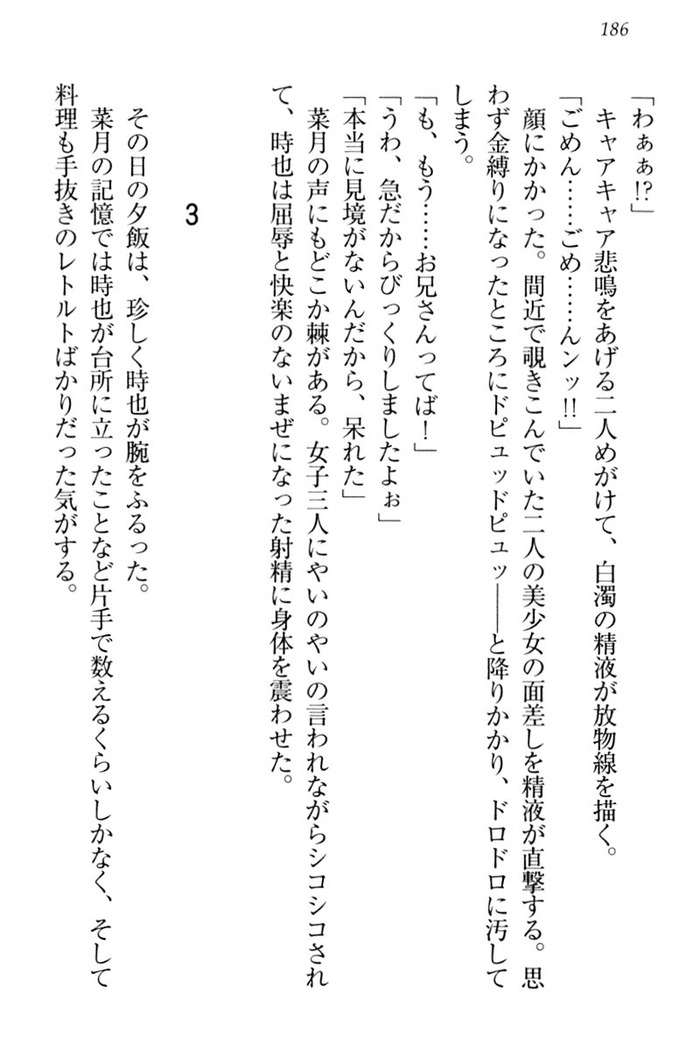 186
「わぁぁ!?」
キャアキャア悲鳴をあげる二人めがけて、白濁の精液が放物線を描く。
「ごめん……ごめ……んンッ!!」
顔にかかった。間近で覗きこんでいた二人の美少女の面差しを精液が直撃する。思
わず金縛りになったところにドピュッドピュッ――と降りかかり、ドロドロに汚して
しまう。
「も、もう……お兄さんってば！」
「うわ、急だからびっくりしましたよぉ」
「本当に見境がないんだから、呆れた」
菜月の声にもどこか棘がある。女子三人にやいのやいの言われながらシコシコされ
て、時也は屈辱と快楽のないまぜになった射精に身体を震わせた。
3
その日の夕飯は、珍しく時也が腕をふるった。
菜月の記憶では時也が台所に立ったことなど片手で数えるくらいしかなく、そして
料理も手抜きのレトルトばかりだった気がする。